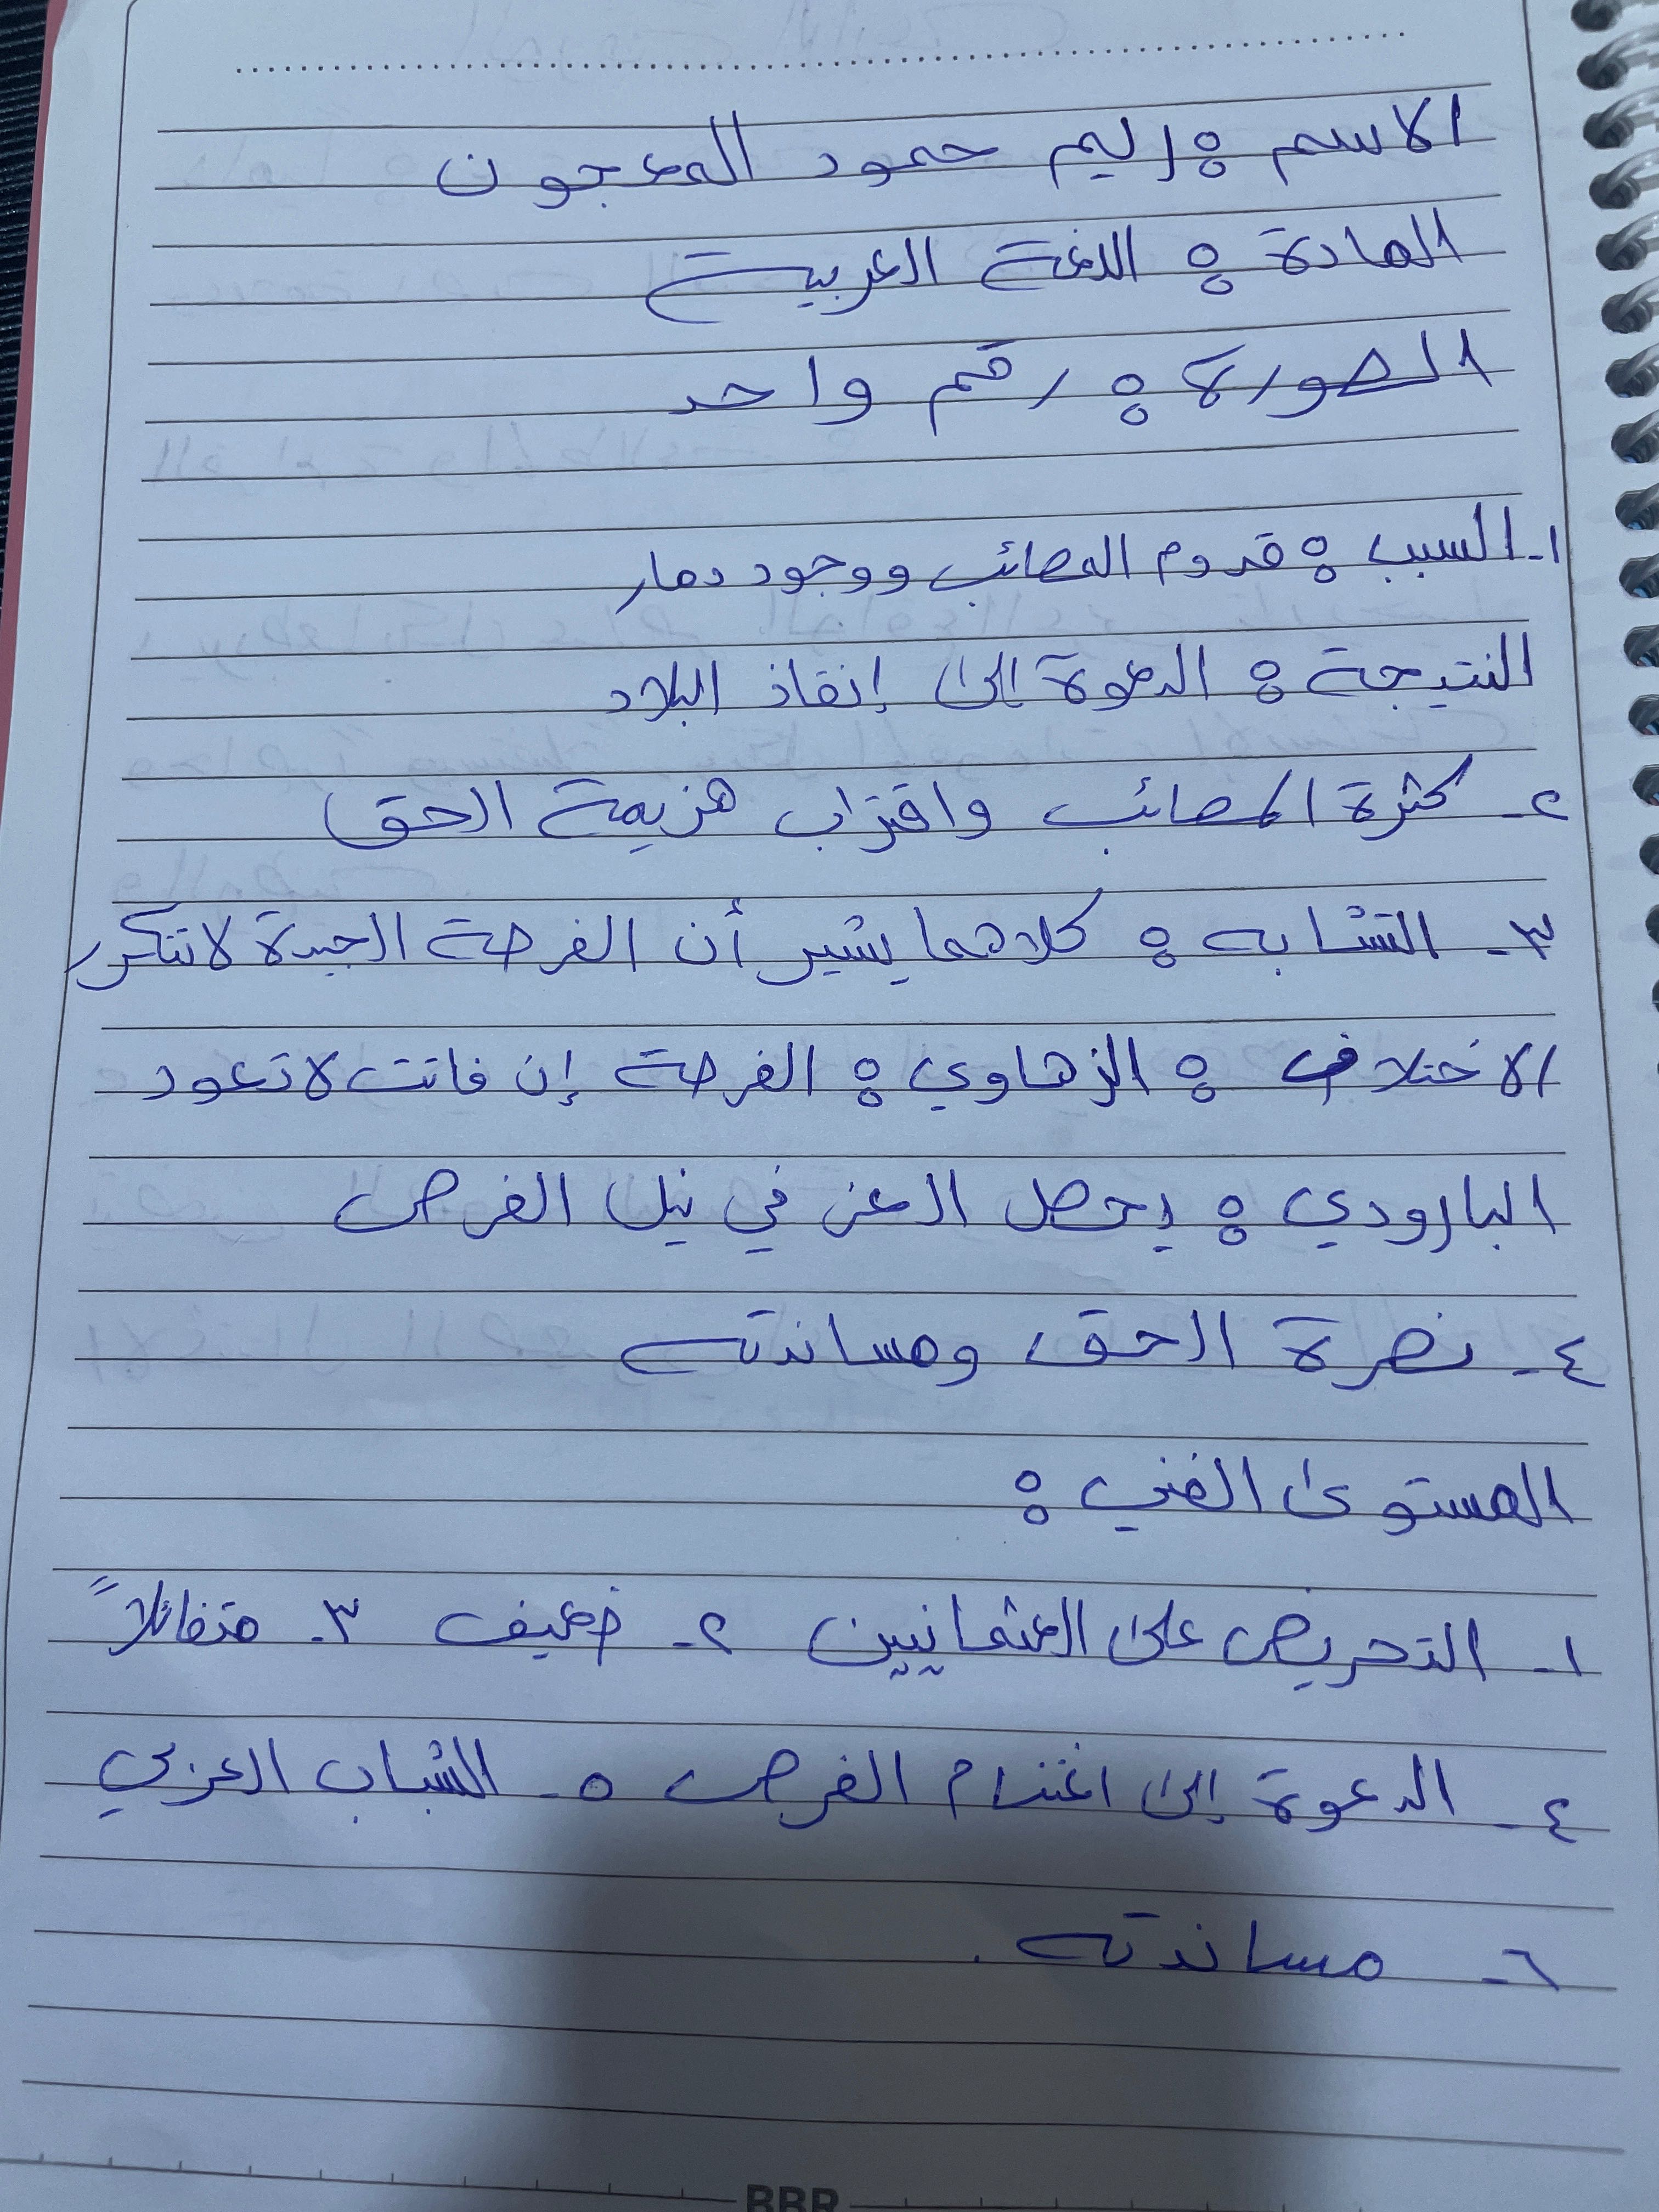 الاسم : ريم حمود المعجون
المادة : اللغة العربية
الصورة : رقم واحد
١- السبب : قدوم المصائب ووجود دمار
النتيجة : الدعوة إلى إنقاذ البلاد
٢- كثرة المصائب واقتراب هزيمة الحق
٣- التشابه : كلاهما يشير أن الفرصة الجيدة لا تتكرر
الاختلاف : الزهاوي : الفرصة إن فاتت لا تعود
البارودي : يحصل العز في نيل الفرص
٤- نصرة الحق ومساندته
المستوى الفني :
١- التحريض على العثمانيين ٢- ضعيف ٣- متفائلاً
٤- الدعوة إلى اغتنام الفرص ٥- الشباب العربي
٦- مساندته .
BBR